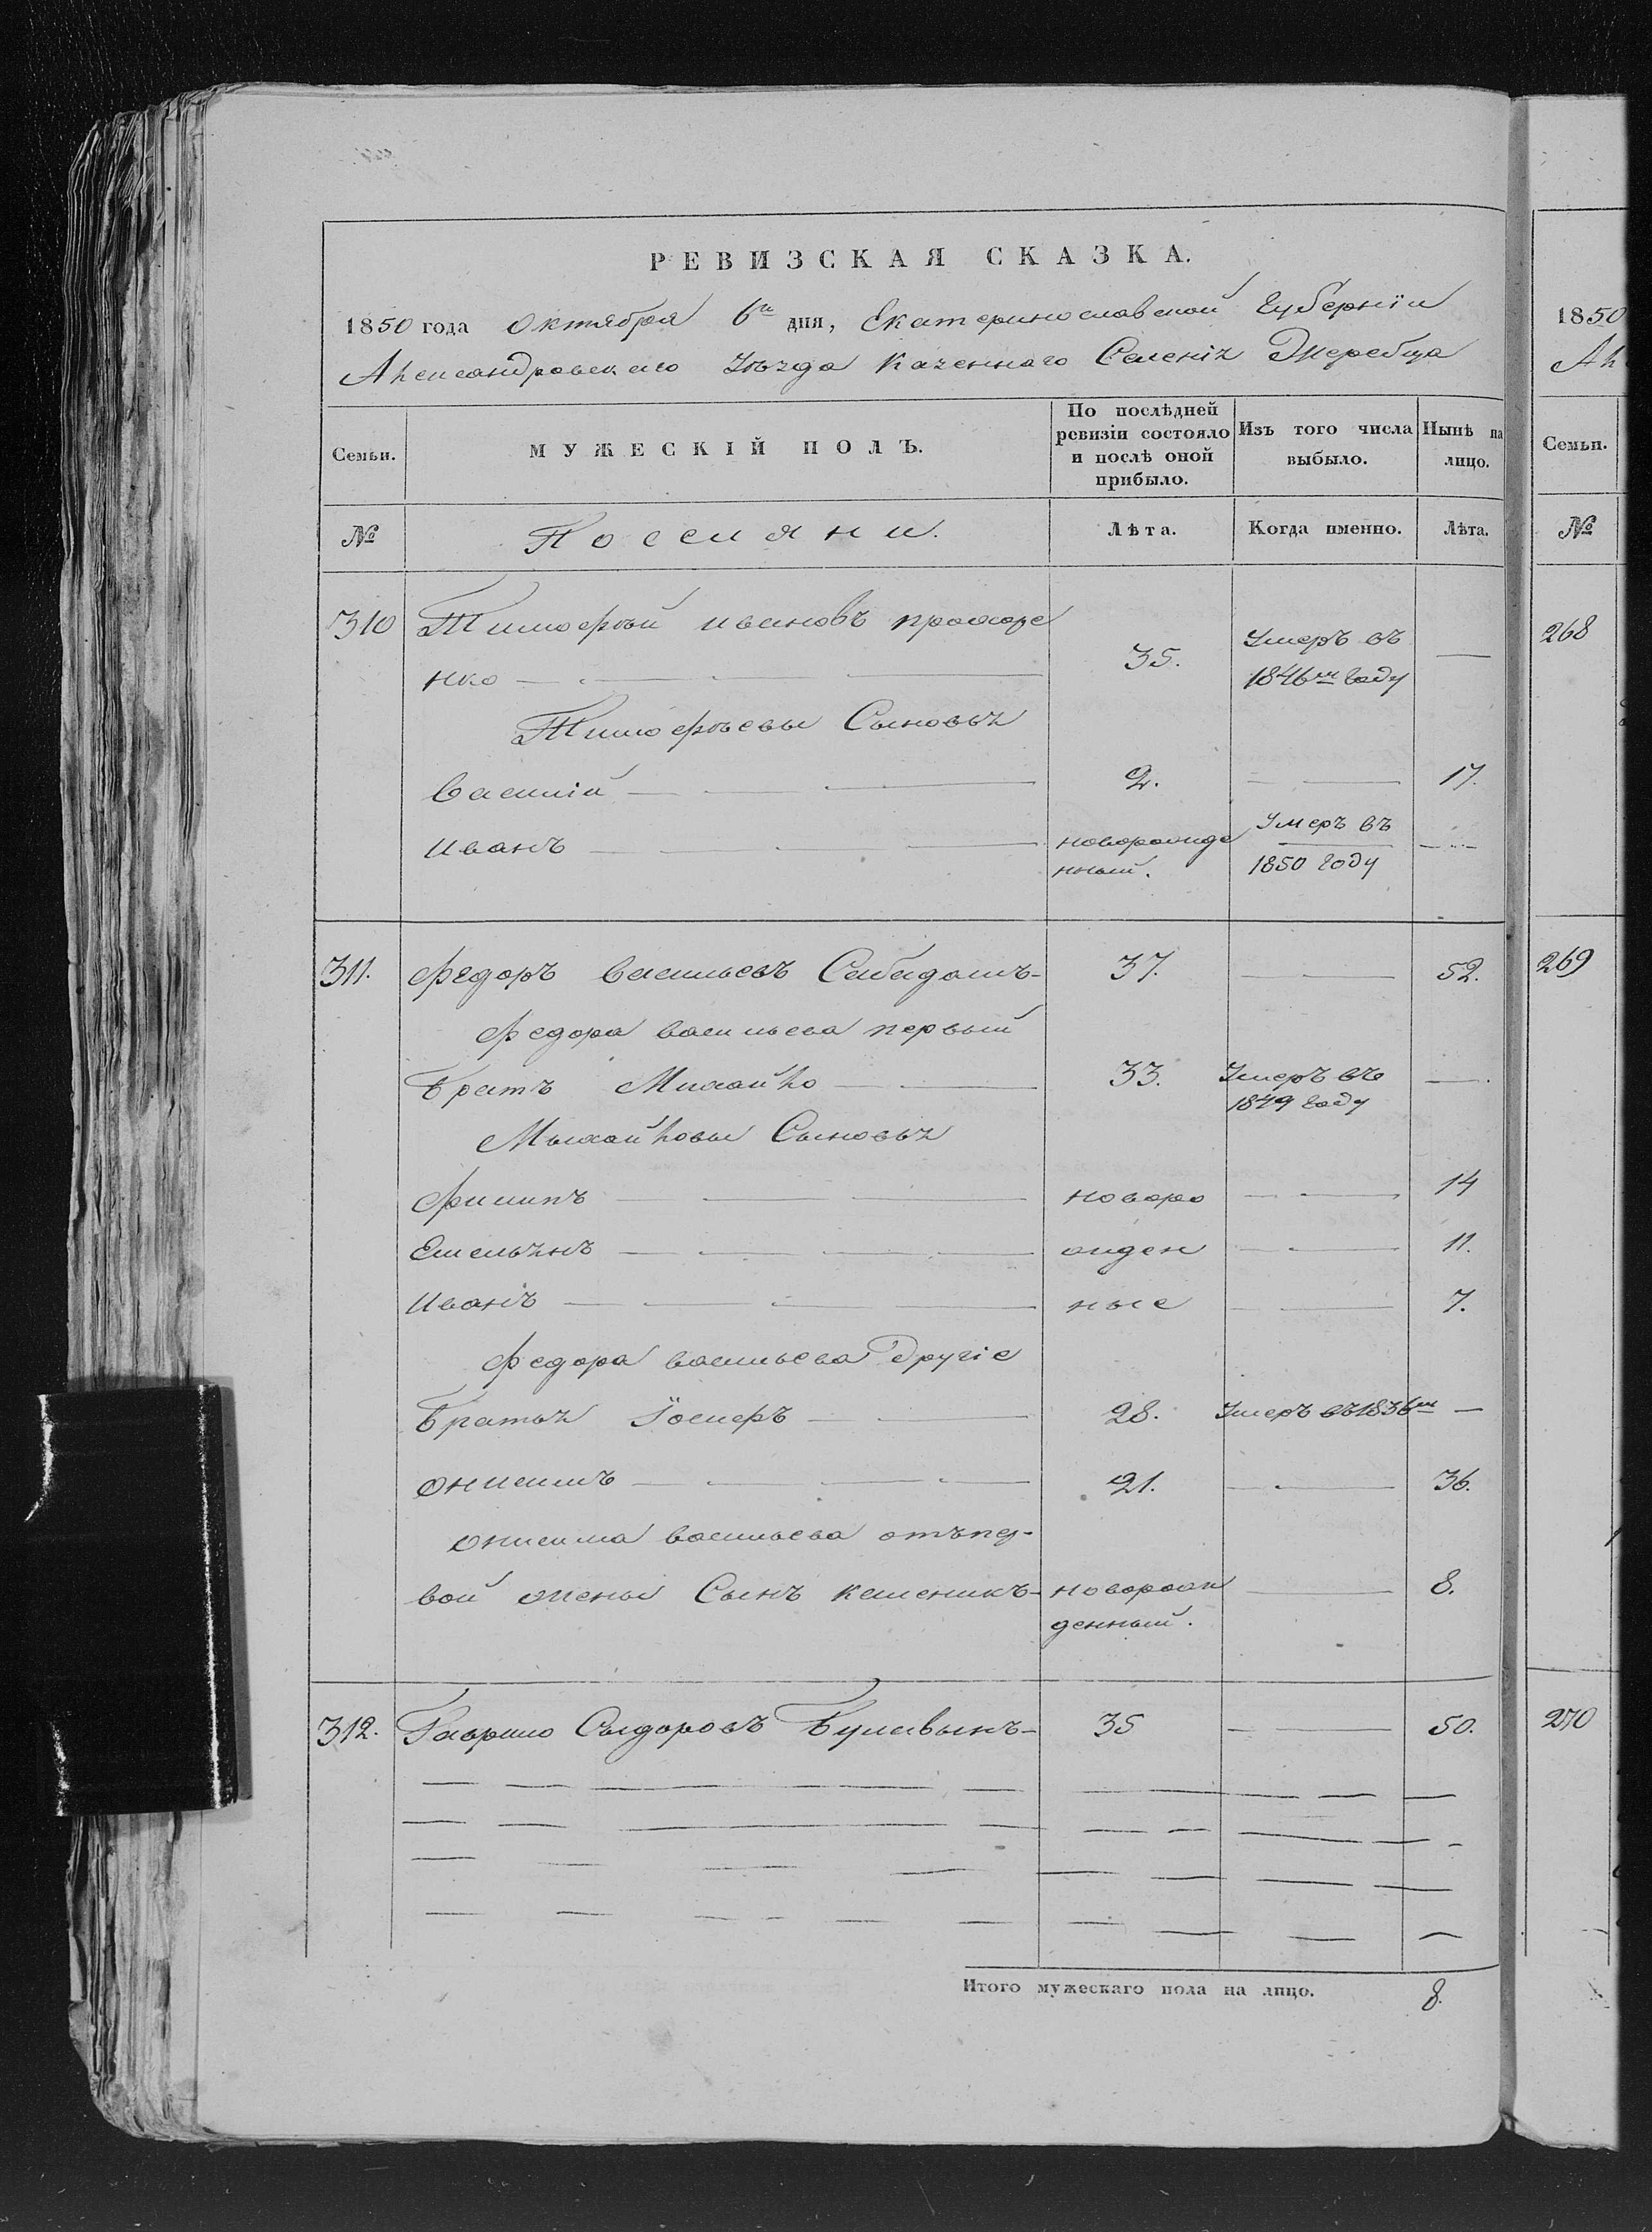 РЕВИЗСКАЯ СКАЗКА.
1850 года Октября 6го дня, Екатеринославской Губернiи
Александровскаго Уѣзда Казеннаго Селенiя Жеребца
Семьи. МУЖЕСКIЙ ПОЛЪ. По послѣдней ревизiи состояло и послѣ оной прибыло. Изъ того числа выбыло. Нынѣ на лицо.
№ Поселяни. Лѣта. Когда именно. Лѣта.
310 Тимофѣй Ивановъ Прохоре
нко — 35. Умеръ въ 1846м Году —
Тимофѣевы Сыновья
Василiй — 2. — 17.
Иванъ — новорожде нный. Умеръ въ 1850 Году —
311. Федоръ Васильевъ — 37. — 52.
Федора Васильева первый
Братъ Михайло — 33. Умеръ въ 1849 Году —
Михайловы Сыновья
Филипъ — новоро — 14
Емельянъ — жден — 11.
Иванъ — ные — 7.
Федора Васильева другiе
Братья Iосифъ — 28. Умеръ въ 1836м —
Онисимъ — 21. — 36.
Онисима Васильева отъ пер-
вой жены Сынъ — новорож денный. — 8.
312. Гаврило Сыдоровъ Булавынъ — 35 — 50.
Итого мужескаго пола на лицо. 8.
1850
Ал
Семьи.
№
268
269
270